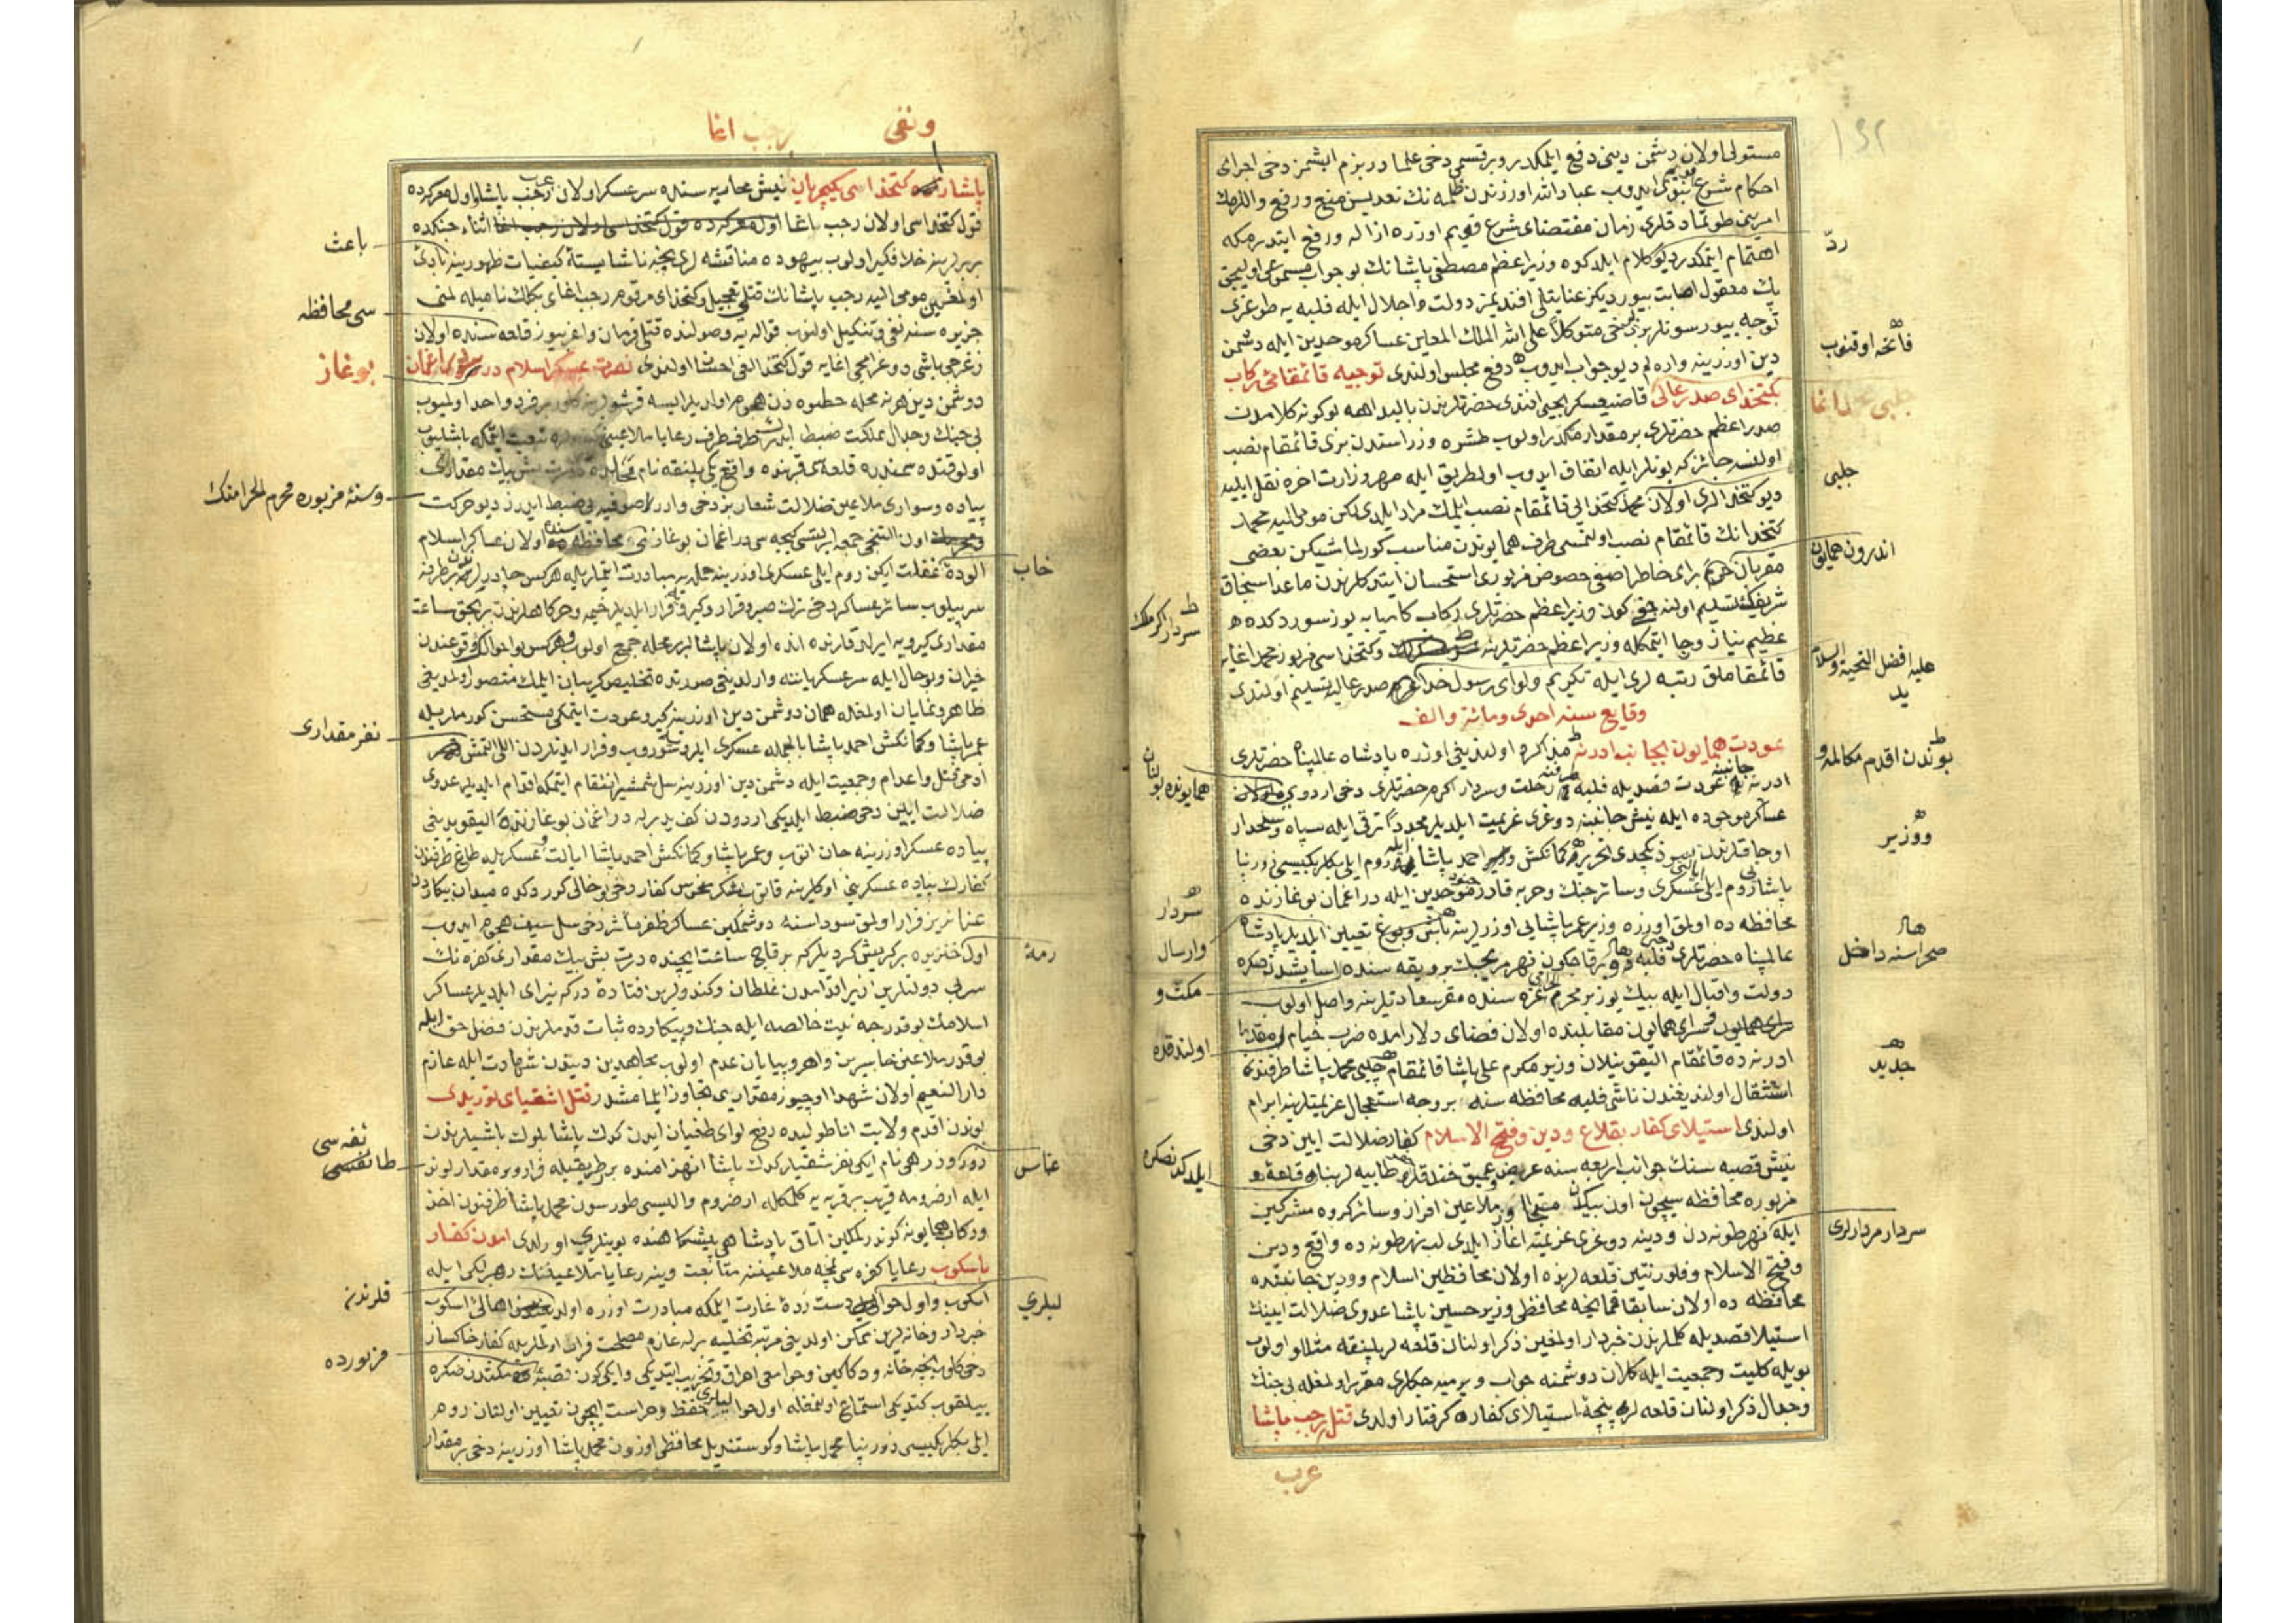 مستولی اولان دشمن دینی دفع ایلمکدر و بر قسمی دخی علمادر بزم ایشمز دخی اجرای
احکام شرع نبوی ایدوب عباد الله اوزرندن ظلمه نك تعدیسن منع و رفع و
زمان مقتضای شرع قویم اوزره ازاله و رفع ایتدرمکه
ردّ
اهتمام ایتمکدر دیو کلام ایلدکده وزیر اعظم مصطفی پاشانك بو جواب
پك معقول اصابت بیوردیکز عنایتلی افندیمز دولت و اجلال ایله فلبه یه طوغری
توجه بیورسونلر بز دخی متوکلاً علی الله الملك المعین عساکر موحدین ایله دشمن
فاتحه اوقنوب
دین اوزرینه واره لم دیو جواب ایدوب دفع مجلس اولندی توجیه قائمقامئ رکاب
بکتخدای صدر عالی قاضیعسکر یحیی افندی حضرتلرندن بالیده اهمه بو کونه کلامدن
چلبی محمد اغا
صدر اعظم حضرتلری بر مقدار مکدر اولوب طشره وزراسندن بری قائمقام نصب
اولنسه جائز که بونلر ایله اتفاق ایدوب اول طریق ایله مهر وزارت اخره نقل ایلیه
چلبی
دیو کتخدالری اولان محمد کتخدایی قائمقام نصب ایلمك مراد ایلدی لکن مومی الیه محمد
کتخدانك قائمقام نصب اولنمسی طرف همایوندن مناسب کورلمامشیکن بعضی
اندرون همایون
مقربان حرم برای خاطر اصفی خصوص مزبوری استحسان ایتدکلرندن ماعدا سنجاق
شریفك تسلیم اولنه جغی کون وزیر اعظم حضرتلری رکاب کامیابه یوز سوردکده
سردار اکرمك
عظیم نیاز و رجا ایتمکله وزیر اعظم حضرتلرینه و کتخداسی مزبور محمد اغایه
علیه افضل التحیة والسلام
قائمقاملق رتبه لری ایله تکریم و لوای رسول خدا صدر عالیه تسلیم اولندی
وقایع سنه احدی ومائة والف
عودت همایون بجانب ادرنه مذاکره اولندیغی اوزره پادشاه عالمپناه حضرتلری
بوندن اقدم مکالمه و
ادرنه جانبنه عودت قصدیله فلبه طرفنه رحلت و سردار اکرم حضرتلری دخی اردوی
همایونده بولنان
عساکر موجوده ایله نیش جانبنه دوغری عزیمت ایلدیلر مجدداً ترقی ایله سپاه و سلحدار
و وزیر
اوجاقلرندن بیوز یکجدی تحریر کمانکش احمد پاشا ایله روم ایلی بکلربکیسی زورنبا
پاشا روم ایلی عسکری و سائر جنك و حربه قادر جنود موحدین ایله دراغمان بوغازنده
سردار
محافظه ده اولمق اوزره وزیر عمر پاشایی اوزرلرینه باش و بوغ تعیین ایلدیلر پادشاه
وارسال
عالمپناه حضرتلری دخی فلبه ده بر قاج کون نهر مریجك بر ویقه سنده اسایشدن صکره
صحراسنه داخل
مکث و
دولت و اقبال ایله بیك یوز بر محرم غره سنده مقر سعادتلرینه واصل اولوب
سرای همایون مقابلنده اولان فضای دلاراده ضرب خیام
اولندقده
ادرنه ده قائمقام الیقونیلان وزیر مکرم علی پاشا قائمقام چلبی محمد پاشا طرفندن
جدید
استثقال اولندیغندن ناشی فلبه محافظه سنه بر وجه استعجال عزیمتلرینه ابرام
اولندی استیلای کفار بقلاع ودین و فتح الاسلام کفار ضلالت ایین دخی
نیش قصبه سنك جوانب اربعه سنه عریض و عمیق خندقلر و طابیه لر بناء و قلعه
ایلدکدنصکره
مزبوره محافظه سیچون اون بیکدن متجاوز ملاعین افراز و سائر کروه مشرکین
ایله نهر طونه دن ودینه دوغری عزیمته اغاز ایلدی لب نهر طونه ده واقع ودین
سردار مردارلری
و فتح الاسلام و فلورنتین قلعه لرنده اولان محافظین اسلام و ودین جانبنده
محافظه ده اولان سابقا قمانجه محافظی وزیر حسین پاشا عدوی ضلالت ایینك
استیلا قصدیله کلملرندن خبردار اولمغین ذکر اولنان قلعه لر پلنقه مثالو اولوب
بویله کلیت و جمعیت ایله کلان دوشمنه جواب ویرمیه جکلری مقرر اولمغله بی جنك
و جدال ذکر اولنان قلعه لر پنجۀ استیلای کفاره کرفتار اولدی قتل رجب پاشا
عرب
ونفی رجب اغا
پاشا کتخداسی یکیچریان نیش محاربه سنده سرعسکر اولان عرب رجب پاشا و اول معرکه ده
قول کتخداسی اولان رجب اغا اول معرکه ده قول کتخداسی اولان رجب اغا اثناء جنکده
باعث
بربرلرینه خلافکیر اولوب بیهوده مناقشه لری نیجه ناشایسته کیفیات ظهورینه بادی
اولمغین مومی الیه رجب پاشانك قتلی تعجیل و کتخدای مرقوم رجب اغای بکلك نامیله لمنی
سی محافظه
جزیره سنه نفی و تنکیل اولنوب قواله یه وصولنده قتلی فرمان و اغریبوز قلعه سنده اولان
زغرجی باشی دوغرامجی اغایه قول کتخدالغی احسان اولندی نصرت عسکر اسلام در دراغمان
بوغاز
دوشمن دین هر نه محله خطوه زن هجوم اولدیلر ایسه قرشولرینه کلور بر فرد واحد اولمیوب
بی جنك و جدال مملکت ضبط ایدرك طرف طرف رعایا ملاعینی تبعیت ایتمکه باشلیوب
اول وقتده سمندره قلعه سی قربنده واقع یکی پلنقه نام محلده درت بش بیك مقداری
وسنۀ مزبوره محرم الحرامنك
پیاده و سواری ملاعین ضلالت شعار بز دخی وارر صوفیه یی ضبط ایدرز دیو حرکت
اون التنجی جمعه ایرتسی کیجه سی دراغمان بوغازنی محافظه سنده اولان عساکر اسلام
خاب
الودۀ غفلت ایکن روم ایلی عسکری اوزرینه حمله یه مبادرت ایتملریله هرکس چادرلرندن بر طرفه
سرپیلوب سائر عساکر دخی ترك صبر و قرار و کیرویه فرار ایلدیلر خیمه و خرکاهلرندن بریجق ساعت
مقداری کیرویه ایرلدقلرنده انده اولان پاشالر بر محله جمع اولوب هرکس بو احوالك وقوعندن
حیران و بو حال ایله سرعسکر یاننه وارلدیغی صورتده تخلیص کریبان ایلمك متصور اولمدیغی
ظاهر و نمایان اولمغله همان دوشمن دین اوزرینه کیرو عودت ایتمکی مستحسن کورملریله
نفر مقداری
عمر پاشا و کمانکش احمد پاشا بالجمله عسکری ایلرو سوروب و فرار ایدنلردن اللی التمش
ادمی قتل و اعدام و جمعیت ایله دشمن دین اوزرینه سل شمشیر انتقام ایتمکه اقدام ایلدیلر عدوی
ضلالت ایین دخی ضبط ایلدیکی اردودن کف ید برله دراغمان بوغازنده الیقودیغی
پیاده عسکر اوزرینه جان اتوب و عمر پاشا و کمانکش احمد پاشا ایالت عسکریله طاغ طرفندن
کفارك پیاده عسکرینی اوکلرینه قاتوب لشکر منحوس کفار دخی بو حالی کوردکده میدان پیکاردن
عنانریز فرار اولمق سوداسنه دوشمکین عساکر ظفر مأثر دخی سل سیف هجوم ایدوب
رمۀ
اول خنزیره بر کریش کردیلر که بر قاچ ساعت ایچنده درت بش بیك مقداری کفره نك
سر بی دولتلرین زیر اقدامدن غلطان و کندولرین فتادۀ درکه نیرای ایلدیلر عساکر
اسلامك بو قدرجه نیت خالصه ایله جنك و پیکارده ثبات قدملرندن فضل حق ایله
بو قدر ملاعین خاسرین واهر و بیابان عدم اولوب مجاهدین دیندن شهادت ایله عازم
دار النعیم اولان شهدا اوچیوز مقداریی تجاوز ایلمامشدر قتل اشقیای توریدی
بوندن اقدم ولایت اناطولیده رفع لوای طغیان ایدن کدك پاشا بلوك باشیلرندن
نفه سی
طائفسی
عناس
نام ایکی نفر شقیلر کدك پاشا انهزامنده بر طریقیله فرار و بر مقدار لوند
ایله ارضرومه قریب بر قریه یه کلمکله ارضروم والیسی طورسون محمد پاشا طرفندن اخذ
و رکاب همایونه کوندرلمکین اتاق پادشاهی پیشکاهنده بوینلری اورلدی امدن کفار
باسکوب رعایا کفره سی نیجه ملاعیننه متابعت وینه رعایا ملاعینك رهبرلکی ایله
قلرندن
لیلری
اسکوب و اول حوالی دست زدۀ غارت ایلمکه مبادرت اوزره اولدقلرندن اهالئ اسکوب
خبردار و خانه لرین ممکن اولدیغی مرتبه تخلیه برله عازم مصلحت فرار اولملریله کفار خاکسار
مزبورده
دخی کلوب نیجه خانه و دکاکین و جوامعی احراق و تخریب ایتدیکی و ایکی کون قصبۀ مکثدن صکره
یینه چکلوب کتدیکی استماع اولنمغله اول حوالیلری حفظ و حراست ایچون تعیین اولنان روم
ایلی بکلربکیسی زورنبا محمد پاشا و کوستندیل محافظی اوزون محمد پاشا اوزرینه دخی بر مقدار